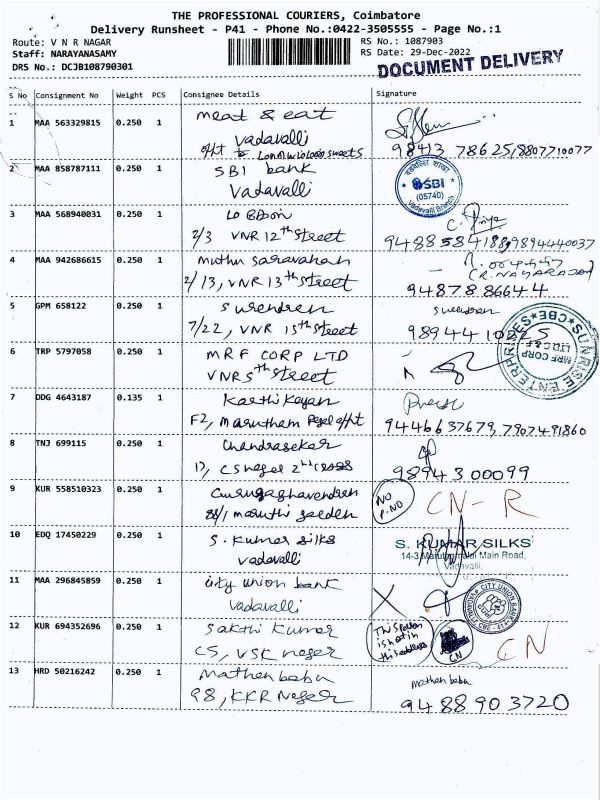 THE PROFESSIONAL COURIERS, Coimbatore
Delivery Runsheet - P41 - Phone No.:0422-3505555 - Page No.:1
Route: V N R NAGAR
Staff: NARAYANASAMY
DRS No.: DCJB108790301
RS No.: 1087903
RS Date: 29-Dec-2022
DOCUMENT DELIVERY
S No Consignment No Weight PCS Consignee Details Signature
1 MAA 563329815 0.250 1 meat & eat
vadavalli
98413 78625, 8807710077
2 MAA 858787111 0.250 1 SBI bank
vadavalli
SBI
(05740)
Vadavalli Branch
3 MAA 568940031 0.250 1
2/3 VNR 12th street
4 MAA 942686615 0.250 1 muthu saravanan
2/13, VNR 13th street
(R. NAGARAJAN)
94878 86644
5 GPM 658122 0.250 1 surendren
7/22, VNR 15th street
surendren
98944 10225
6 TRP 5797058 0.250 1 MRF CORP LTD
VNR 5th street
SUNRISE ENTERPRISES CBE
MRF CORP LTD C&F
7 DDG 4643187 0.135 1 Karthikeyan
F2, marutham
9446637679, 7907491860
8 TNJ 699115 0.250 1 chandrasekar
98943 00099
9 KUR 558510323 0.250 1 Gurugaghavendren
88/1 maruthi garden
NO P.NO
CN-R
10 EDQ 17450229 0.250 1 S. Kumar silks
vadavalli
S. KUMAR SILKS
Main Road,
Vadavalli.
11 MAA 296845859 0.250 1 city union bank
vadavalli
CITY UNION BANK
12 KUR 694352696 0.250 1 Sakthi Kumar
C5, VSK nager
This person is not in this address
CN
CN
13 HRD 50216242 0.250 1 mathan babu
98, KKR Nager
mathan babu
94889 03720